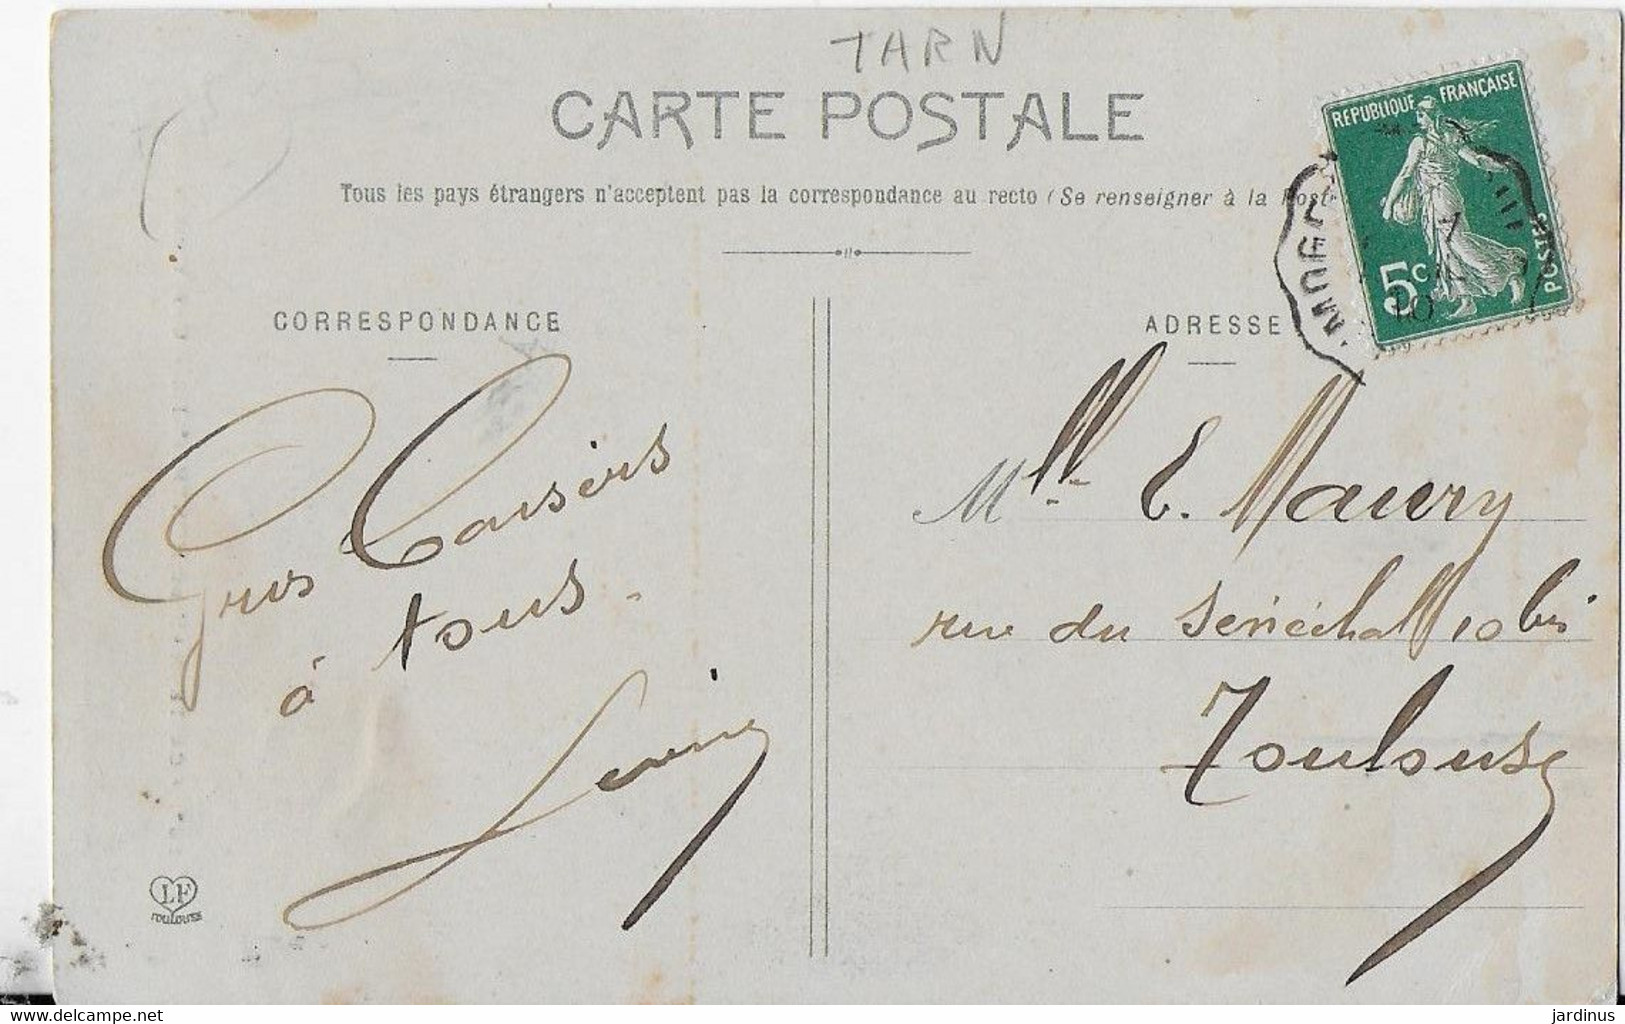 TARN
CARTE POSTALE
Tous les pays étrangers n'acceptent pas la correspondance au recto (Se renseigner à la Poste
RÉPUBLIQUE FRANÇAISE
5c
POSTES
10
CORRESPONDANCE
ADRESSE
Gros Baisers
à tous.
Mlle E. Maury
rue du Sénéchal 10 bis
Toulouse
LF
TOULOUSE
delcampe.net
jardinus